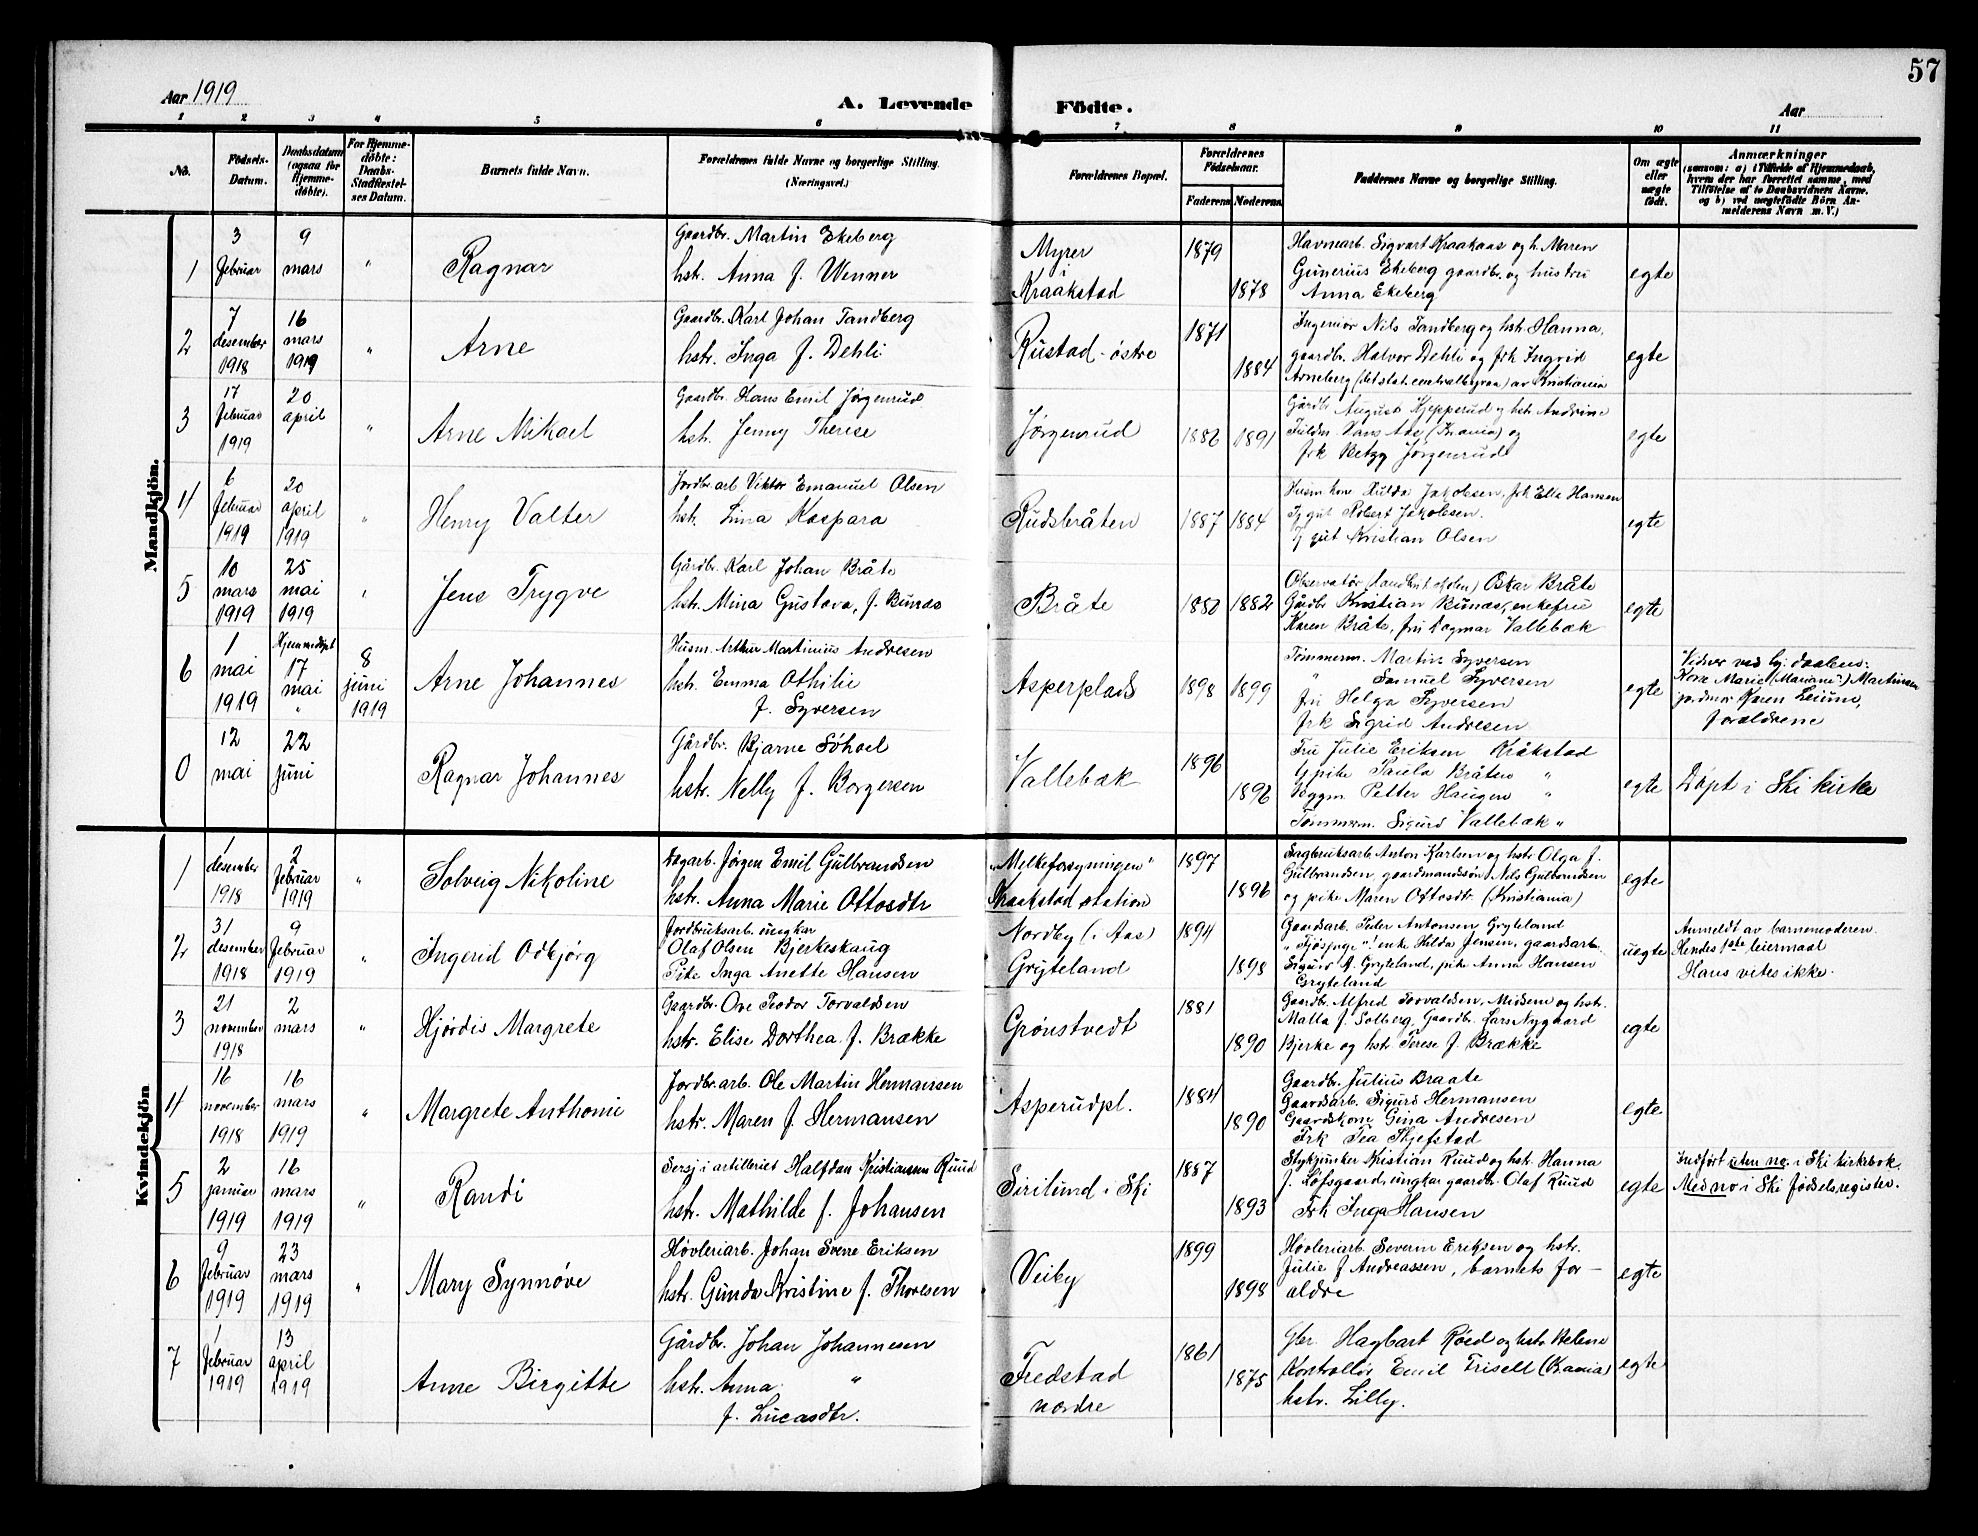 57
Aar 1919
A. Levende Födte.
Aar
1 2 3 4 5 6 7 8 9 10 11
No.
Födsels-Datum.
Daabsdatum (ogsaa for Hjemmedöbte).
For Hjemmedöbte: Daabs-Stadfæstelses Datum.
Barnets fulde Navn.
Forældrenes fulde Navne og borgerlige Stilling.
(Næringsvei.)
Forældrenes Bopæl.
Forældrenes Födselsaar.
Faderens Moderens
Faddernes Navne og borgerlige Stilling.
Om ægte eller uægte födt.
Anmærkninger
(saasom: a) i Tilfælde af Hjemmedaab,
hvem der har forrettet samme, med
Tilföielse af to Daabsvidners Navne.
og b) ved uægtefödte Börn Anmelderens Navn m. V.)
Mandkjön.
1
3 februar
9 mars
"
Ragnar
Gaardbr. Martin Ekeberg
hst. Anna f. Wenner
Myrer
i
Kraakstad
1879
1878
Havnearb. Sigvart Kraakaas og h. Maren
Gunerius Ekeberg gaardbr. og hustru
Anna Ekeberg
egte
2
7 desember 1918
16 mars 1919
"
Arne
Gaardbr. Karl Johan Tandberg
hstr. Inga f. Dehli
Rustad - østre
1871
1884
Ingeniør Nils Tandberg og hstr. Hanna,
gaardbr. Halvor Dehli og frk Ingrid
Arneberg (det stat. centralbyraa) av Kristiania
egte
3
17 februar 1919
20 april
"
Arne Mikael
Gaardbr. Hans Emil Jørgenrud
hst. Jenny Therese
Jørgenrud
1882 1891
Gårdbr August Kjepperud og hstr. Andrine
frk Betzy Jørgenrud
egte
4
6 februar 1919
20 april 1919
"
Henry Valter
Jordbr.arb Viktor Emanuel Olsen
hst. Lina Kaspara
Rudsbråten
1887 1884
Husm kone Hulda Jakobsen, frk Ella Hansen
Tj gut Robert Jakobsen.
Tj gut Kristian Olsen
egte
5
10 mars 1919
25 mai 1919
Jens Trygve
Gårdbr. Karl Johan Bråte
hstr. Mina Gustava, f. Bunæs
Bråte
1882
Oskar Bråte
Gårdbr Kristian Bunæs, enkefru
Karen Bråte, fru Dagmar Vallebæk
egte
6
1 mai 1919
Hjemmedøpt 17 mai "
8 juni 1919
Arne Johannes
Husm. Arthur Martinius Andresen
hstr. Emma Othilie
f. Syversen
Asperplads
1898 1899
Tømmerm. Martin Syversen
" Samuel Syversen
fru Helga Syversen
frk Sigrid Andresen
egte
Kone Marie (Mariane) Martinsen
jordmor Karen Leium,
forældrene
0
12 mai
22 juni
Ragnar Johannes
Gårdbr. Bjarne Søhoel
hstr. Nelly f. Borgersen
Vallebæk
1896
1896
Fru Julie Eriksen Kråkstad
Gpike Paula Bråten "
Byggm. Petter Haugen "
Tømmerm. Sigurd Vallebæk "
egte
Døpt i Ski kirke
Kvindekjön
1
1 desember 1918
2 februar 1919
"
Solveig Nikoline
Dagarb. Jørgen Emil Gulbrandsen
hstr. Anna Marie Ottosdtr
"Melkeforsyningen"
Kraakstad station
1897
1896
Sagbruksarb. Anton Karlsen og hstr Olga f.
Gulbrandsen, gaardmandssøn Nils Gulbrandsen
og pike Maren Ottosdtr. (Kristiania)
egte
2
31 desember 1918
9 februar 1919
"
Ingerid Odbjørg
Jordbruksarb. ungkar
Olaf Olsen Bjerkeskaug
Pike Inga Anette Hansen
Nordby (i Aas)
Gryteland
1894
1898
Gaardsarb. Peder Antonsen Gryteland
enke Hilda Jensen, gaardsarb.
Sigurd A. Gryteland, pike Anna Hansen
Gryteland
uegte
Anmeldt av barnemoderen.
Hendes 1ste leiermaal
Hans vites ikke.
3
21 november 1918
2 mars
"
Hjørdis Margrete
Gaardbr. Ove Teodor Torvaldsen
hstr. Elise Dorthea f. Brække
Grønstvedt
1881
1890
Gaardbr. Alfred Torvaldsen, Midsem og hst.
Malla f. Solberg, Gaardbr. Lars Nygaard
Bjerke og hst Terese f. Brække
egte
4
16 november 1918
16 mars 1919
"
Margrete Anthonie
Jordbr.arb. Ole Martin Hermansen
hstr. Maren f. Hermansen
Asperudpl.
1884
1890
Gaardbr. Julius Braate
Gaardsarb. Sigurd Hermansen
Gaardskone Gina Andresen
Frk Tea Skjefstad
egte
5
2 januar 1919
16 mars 1919
"
Randi
Sersj i artilleriet Halfdan Kristiansen Ruud
hstr. Mathilde f. Johansen
Sirilund i Ski
1887
1893
Stykjunker Kristian Ruud og hst. Hanna
f. Løfsgaard, ungkar gaardbr. Olaf Ruud
Frk Inga Hansen
egte
Indført uten no. i Ski kirkebok.
Med no i Ski fødselsregister.
6
9 februar 1919
23 mars 1919
"
Mary Synnøve
Høvleriarb. Johan Svene Eriksen
hstr. Gunda Kristine f. Thoresen
Veiby
1899
1898
Høvleriarb. Severin Eriksen og hst.
Julie f Andreassen, barnets for-
ældre
egte
7
1 februar 1919
13 april 1919
Anne Birgitte
Gårdbr. Johan Johannesen
hstr. Anna "
f. Lucasdtr.
Fredstad
nordre
1861
1875
Gbr. Hagbart Røed og hstr Helene
Kontrollør Emil Frisell (Krania)
hstr. Lilly.
egte